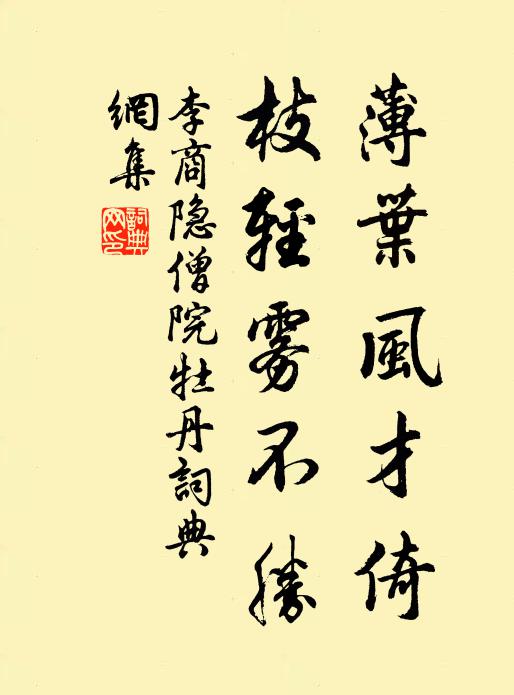 薄葉風才倚
枝輕霧不勝
李商隐僧院牡丹詞典
網集
詞典網印